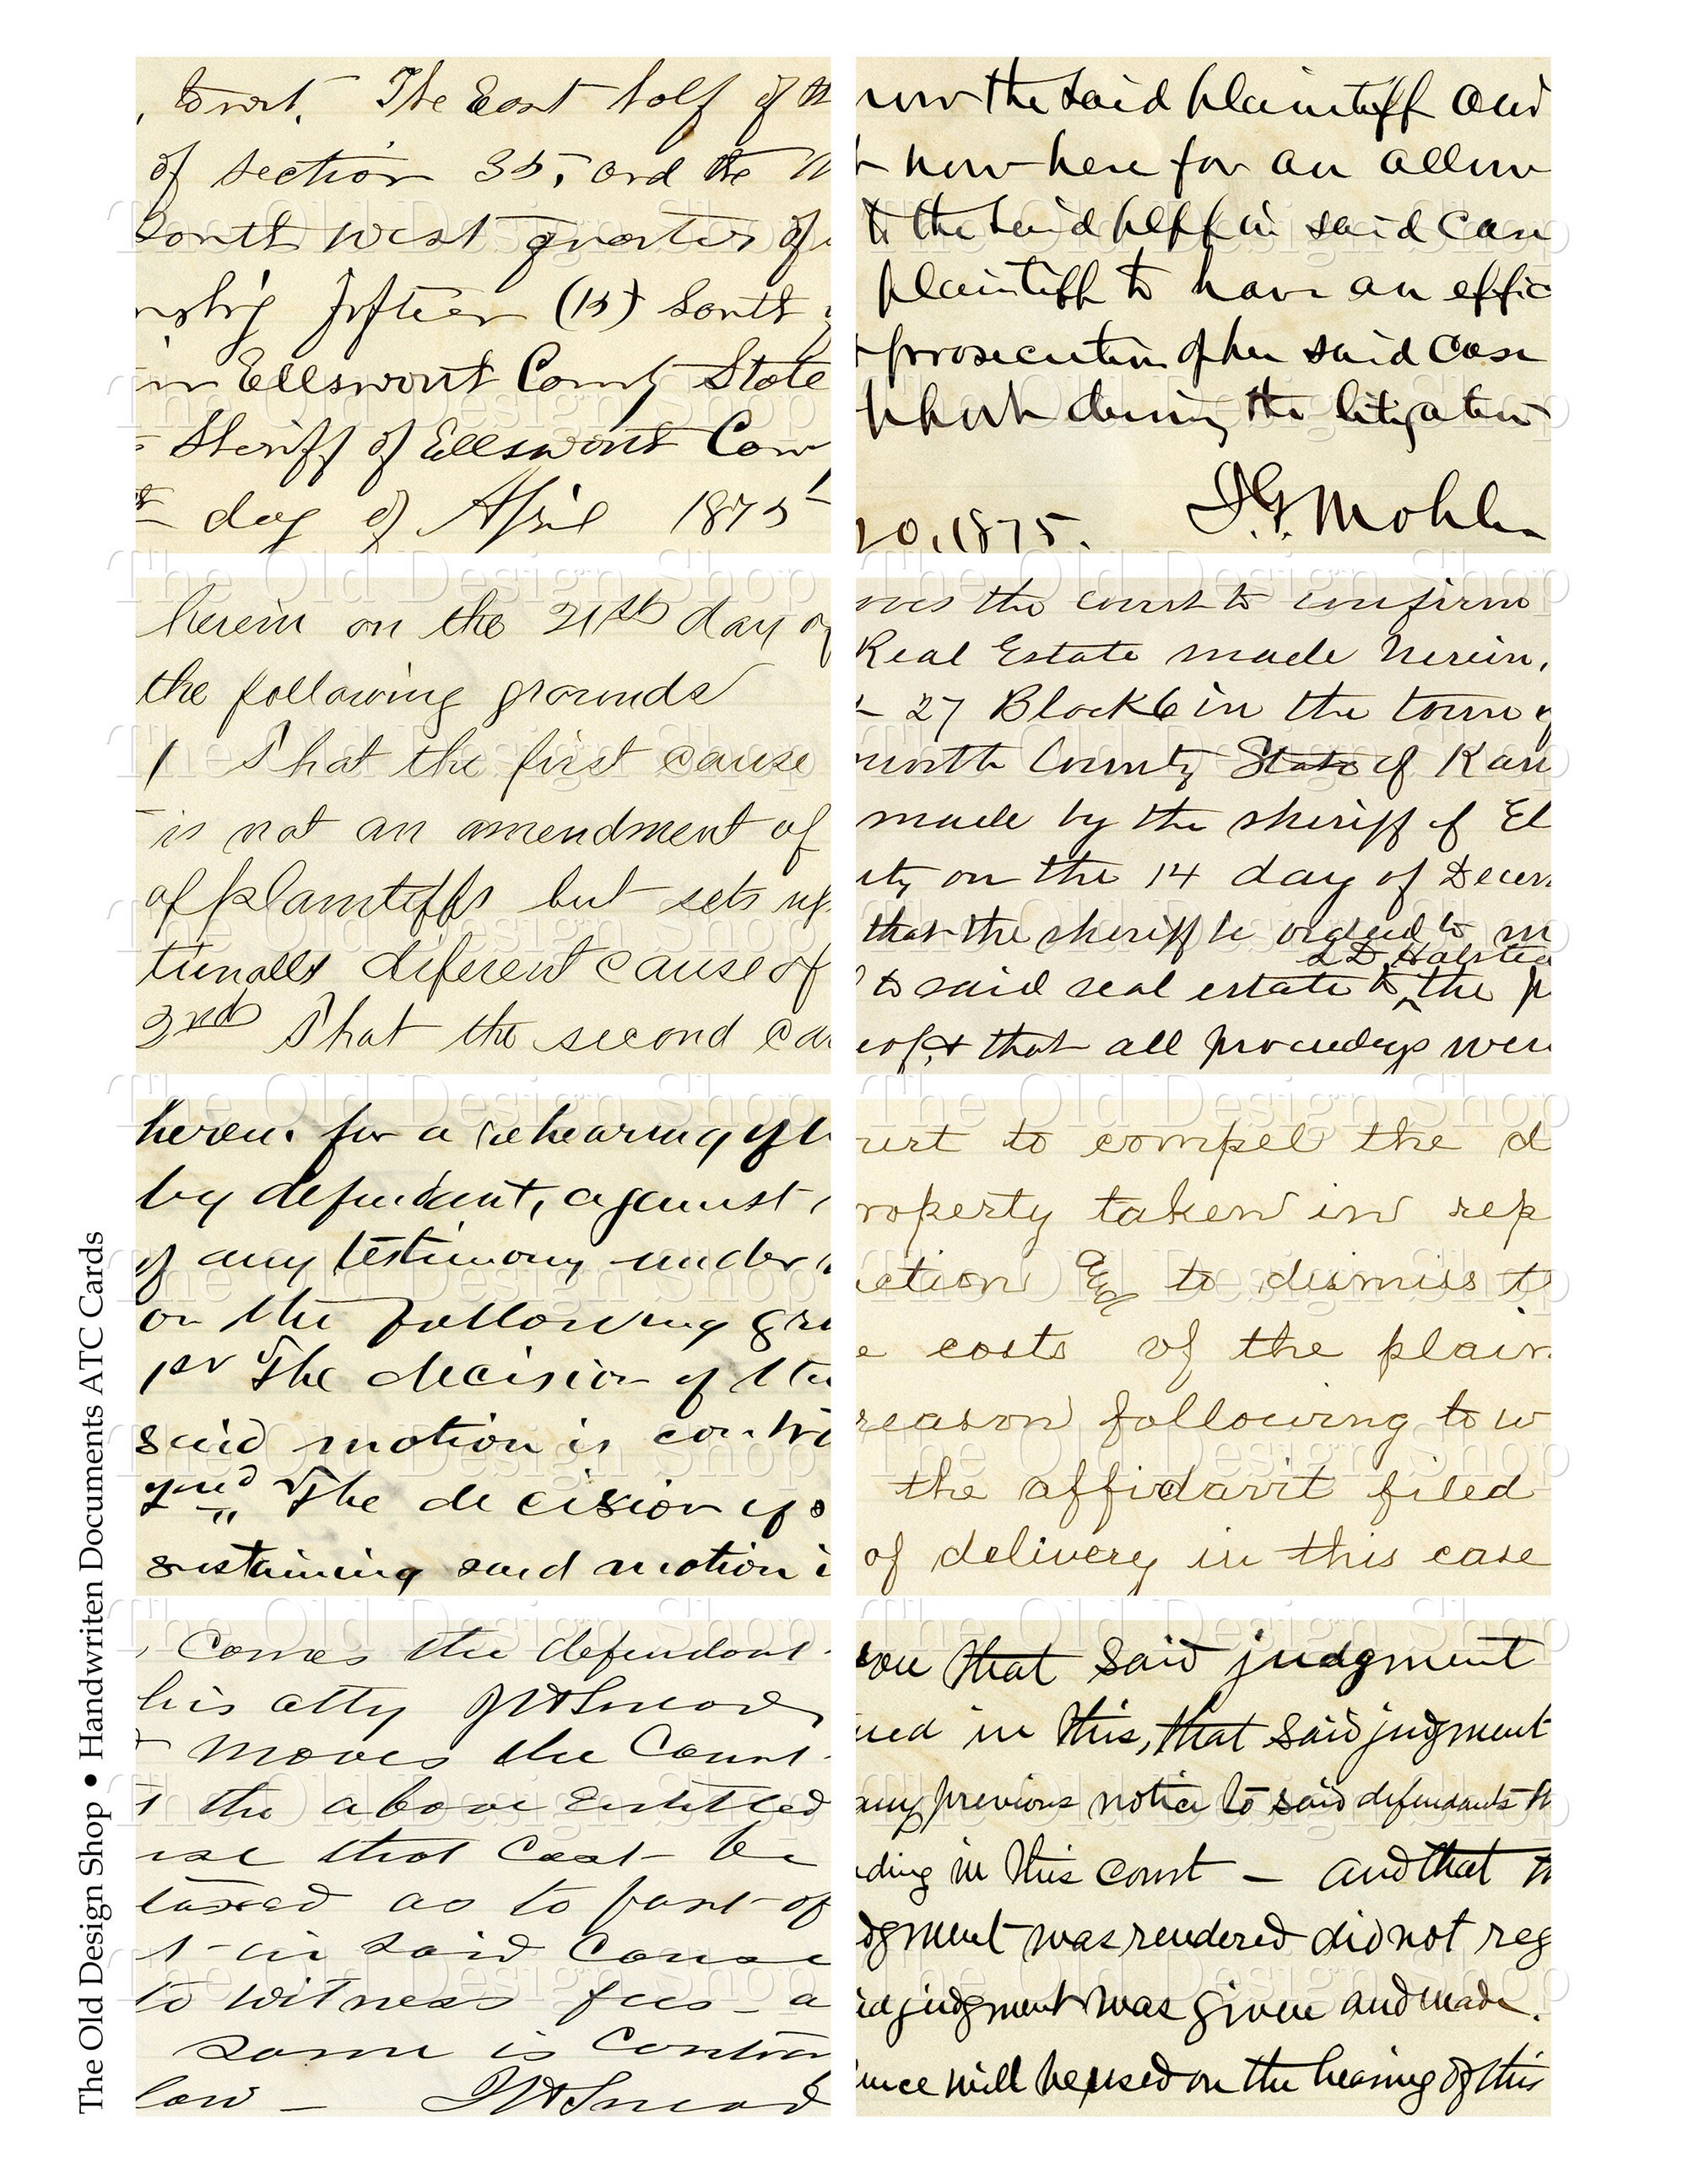 , towit. The East half of th
of section 35, and the N
South West quarter of
nship fifteen (15) South
in Ellsworth County State
Sheriff of Ellsworth Coun
day of April 1875
now the said plaintiff and
now here for an allow
to the said plff in said case
plaintiff to have an effic
prosecution of her said case
support during the litigation
20, 1875. J.G. Mohler
herein on the 21st day of
the following grounds
1 That the first cause
is not an amendment of
of plaintiffs but sets up
diferent cause of
2nd That the second cau
oves the court to confirm
Real Estate made herein,
27 Block 6 in the town of
worth County State of Kan
made by the sheriff of El
ty on the 14 day of Decem
that the sheriff be ordered to m
L D. Halstea
to said real estate to ^ the p
eof & that all proceedings were
herein for a rehearing of t
by defendant, against
of any testimony under
on the following gro
1st The decision of the
said motion is contr
2nd The decision of
sustaining said motion i
urt to compel the d
roperty taken in rep
ction and to dismiss t
e costs of the plain
reason following tow
the affidavit filed
of delivery in this case
Comes the defendant
his atty
moves the Court
the above Entitled
use that Cost be
taxed as to part of
t in said Cause
to witness fees - a
same is Contra
law -
son that said judgment
ued in this, that said judgment
any previous notice to said defendants th
ding in this court — and that th
dgment was rendered did not reg
id judgment was given and made.
ence will be used on the hearing of this
The Old Design Shop • Handwriten Documents ATC Cards
The Old Design Shop